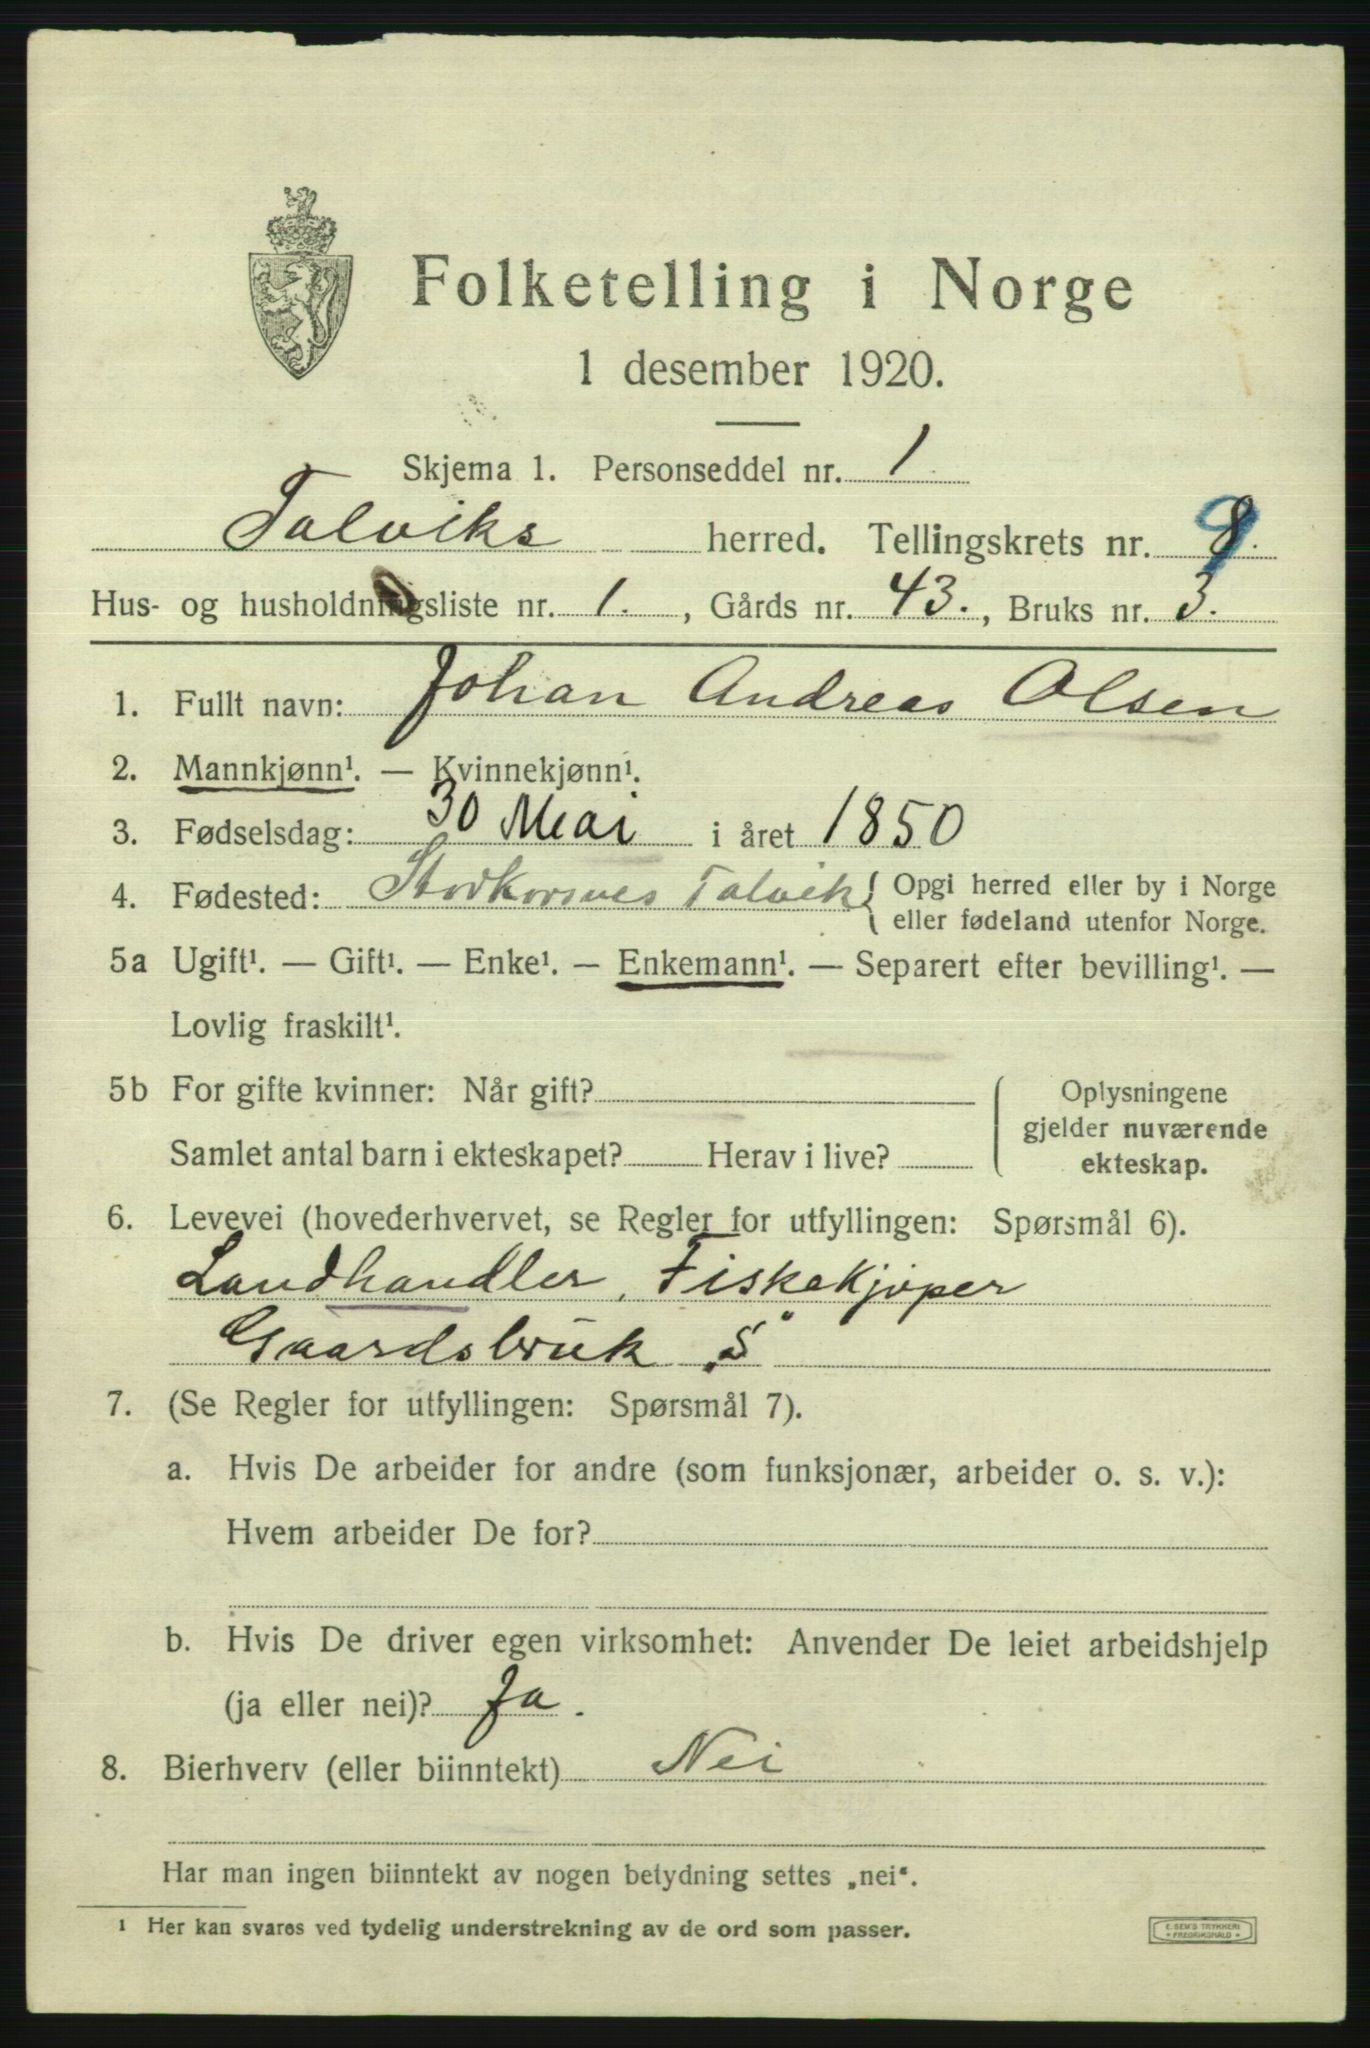 Folketelling i Norge
1 desember 1920.
Skjema 1. Personseddel nr. 1
Talviks herred. Tellingskrets nr. 9.
Hus- og husholdningsliste nr. 1., Gårds nr. 43., Bruks nr. 3.
1. Fullt navn: Johan Andreas Olsen
2. Mannkjønn¹. — Kvinnekjønn¹.
3. Fødselsdag: 30 Mai i året 1850
4. Fødested: Storkorsnes Talvik { Opgi herred eller by i Norge
eller fødeland utenfor Norge.
5a Ugift¹. — Gift¹. — Enke¹. — Enkemann¹. — Separert efter bevilling¹. —
Lovlig fraskilt¹.
5b For gifte kvinner: Når gift?
Samlet antal barn i ekteskapet? Herav i live?
Oplysningene
gjelder nuværende
ekteskap.
6. Levevei (hovederhvervet, se Regler for utfyllingen: Spørsmål 6).
Landhandler, Fiskekjøper
Gaardsbruk „S"
7. (Se Regler for utfyllingen: Spørsmål 7).
a. Hvis De arbeider for andre (som funksjonær, arbeider o. s. v.):
Hvem arbeider De for?
b. Hvis De driver egen virksomhet: Anvender De leiet arbeidshjelp
(ja eller nei)? Ja.
8. Bierhverv (eller biinntekt) Nei
Har man ingen biinntekt av nogen betydning settes „nei“.
¹ Her kan svares ved tydelig understrekning av de ord som passer.
E. SEM'S TRYKKERI
* FREDRIKSHALD *